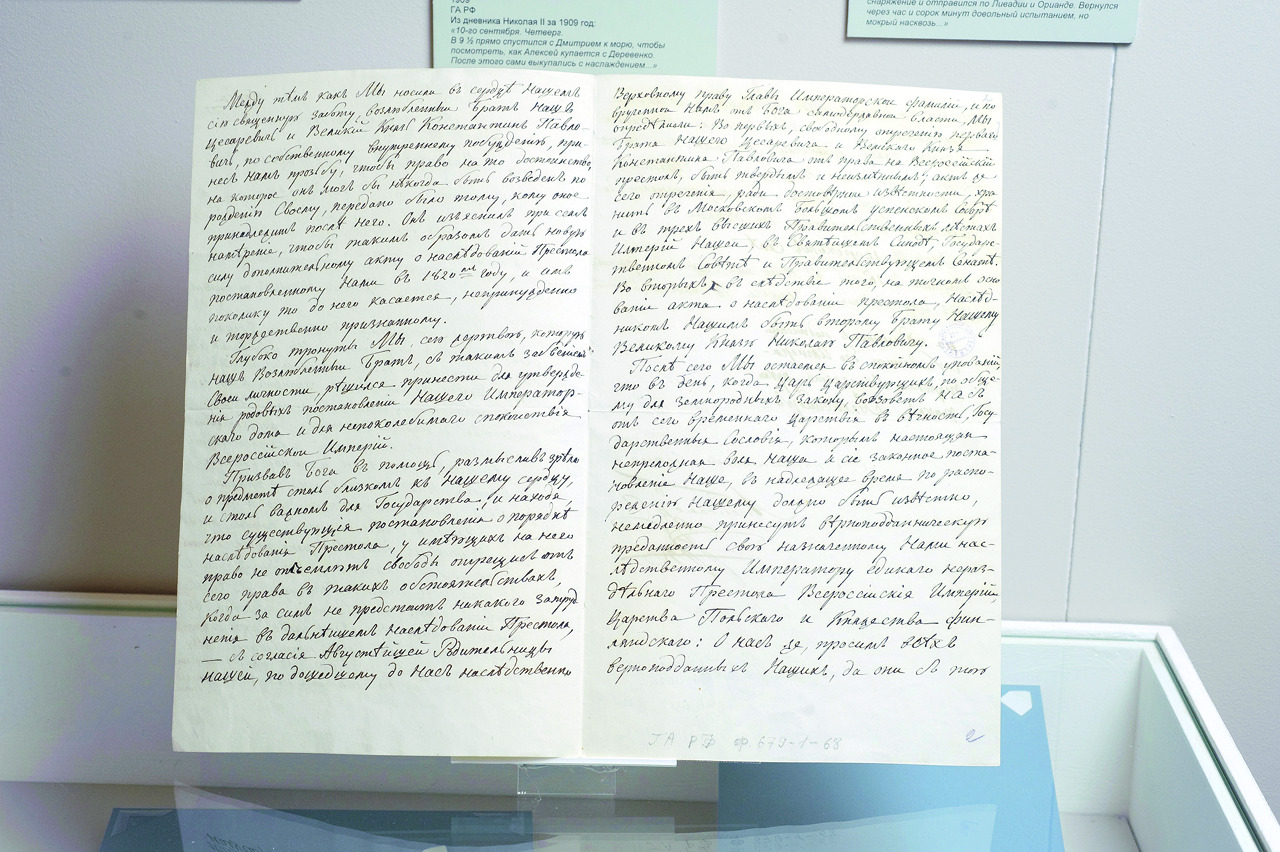 1909
ГА РФ
Из дневника Николая II за 1909 год:
«10-го сентября. Четверг.
В 9 ½ прямо спустился с Дмитрием к морю, чтобы
посмотреть, как Алексей купается с Деревенко.
После этого сами выкупались с наслаждением...»
снаряжение и отправился по Ливадии и Орианде. Вернулся
через час и сорок минут довольный испытанием, но
мокрый насквозь...»
Между тѣмъ какъ Мы носили въ сердцѣ Нашемъ
сію священную заботу, возлюбленный братъ Нашъ
Цесаревичь и Великій Князь Константинъ Павло-
вичь, по собственному внутреннему побужденію, при-
несъ Намъ прозьбу, чтобы право на то достоинство,
на которое онъ могъ бы нѣкогда быть возведенъ по
рожденію Своему, передано было тому, кому оное
принадлежитъ послѣ него. Онъ изъяснилъ при семъ
намѣреніе, чтобы такимъ образомъ дать новую
силу дополнительному акту о наслѣдованіи Престола
постановленному Нами въ 1820мъ году, и имъ
поколику то до него касается, непринужденно
и торжественно признанному.
Глубоко тронуты Мы сею жертвою, которую
Нашъ Возлюбленный Братъ, съ такимъ забвеніемъ
Своей личности, рѣшился принести для утвержде-
нія родовыхъ постановленій Нашего Император-
скаго дома и для непоколебимаго спокойствія
Всероссійской Имперіи.
Призвавъ Бога въ помощь, размысливъ зрѣло
о предметѣ столь близкомъ къ Нашему сердцу,
и столь важномъ для Государства, и находя,
что существующія постановленія о порядкѣ
наслѣдованія Престола, у имѣющихъ на него
право не отъемлятъ свободы отрещись отъ
сего права въ такихъ обстоятельствахъ,
когда за симъ не предстоитъ никакого затруд-
ненія въ дальнѣйшемъ наслѣдованіи Престола,
— съ согласія Августѣйшей Родительницы
Нашей, по дошедшему до Насъ наслѣдственно
Верховному праву Главы Императорской фамиліи, и по
врученной Намъ отъ Бога самодержавной власти, Мы
опредѣлили: Во первыхъ, свободному отреченію перваго
Брата Нашего Цесаревича и Великаго Князя
Константина Павловича отъ права на Всероссійскій
престолъ, быть твердымъ и неизмѣннымъ; актъ же
сего отреченія, ради достовѣрной извѣстности, хра-
нить въ Московскомъ Большомъ Успенскомъ Соборѣ
и въ трехъ высшихъ Правительственныхъ мѣстахъ
Имперіи Нашей, въ Святѣйшемъ Синодѣ, Государс-
твенномъ Совѣтѣ и Правительствующемъ Сенатѣ.
Во вторыхъ, въ слѣдствіе того, на точномъ осно-
ваніи акта о наслѣдованіи престола, Наслѣд-
никомъ Нашимъ быть второму брату Нашему
Великому Князю Николаю Павловичу.
Послѣ сего Мы остаемся въ спокойномъ упованіи,
что въ день, когда Царь Царствующихъ, по обще-
му для земнородныхъ закону, воззоветъ Насъ
отъ сего временнаго царствія въ вѣчность, Госу-
дарственныя Сословія, которымъ настоящая
непреложная воля Наша и сіе законное поста-
новленіе Наше, въ надлежащее время по распо-
ряженію Нашему должно быть извѣстно,
немедленно принесутъ вѣрноподданническую
преданность свою назначенному Нами нас-
лѣдственному Императору единаго нераз-
дѣльнаго Престола Всероссійскія Имперіи,
Царства Польскаго и Княжества Фин-
ляндскаго: О Насъ же, просимъ всѣхъ
вѣрноподданныхъ Нашихъ, да они съ тою
ГА РФ ф. 679-1-68
2